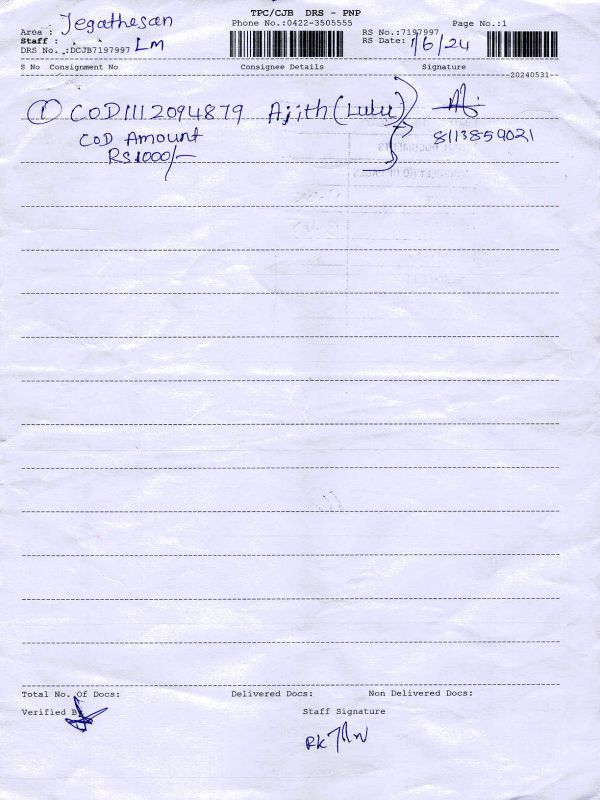 TPC/CJB DRS - PNP
Phone No.:0422-3505555
Page No.:1
Area : Jegathesan
RS No.:7197997
Staff : Lm
RS Date: 1/6/24
DRS No. :DCJB7197997
S No Consignment No Consignee Details Signature
--20240531--
1 COD1112094879 Ajith (Lulu)
COD Amount 8113859021
RS 1000/-
Total No. Of Docs: Delivered Docs: Non Delivered Docs:
Verified By
Staff Signature